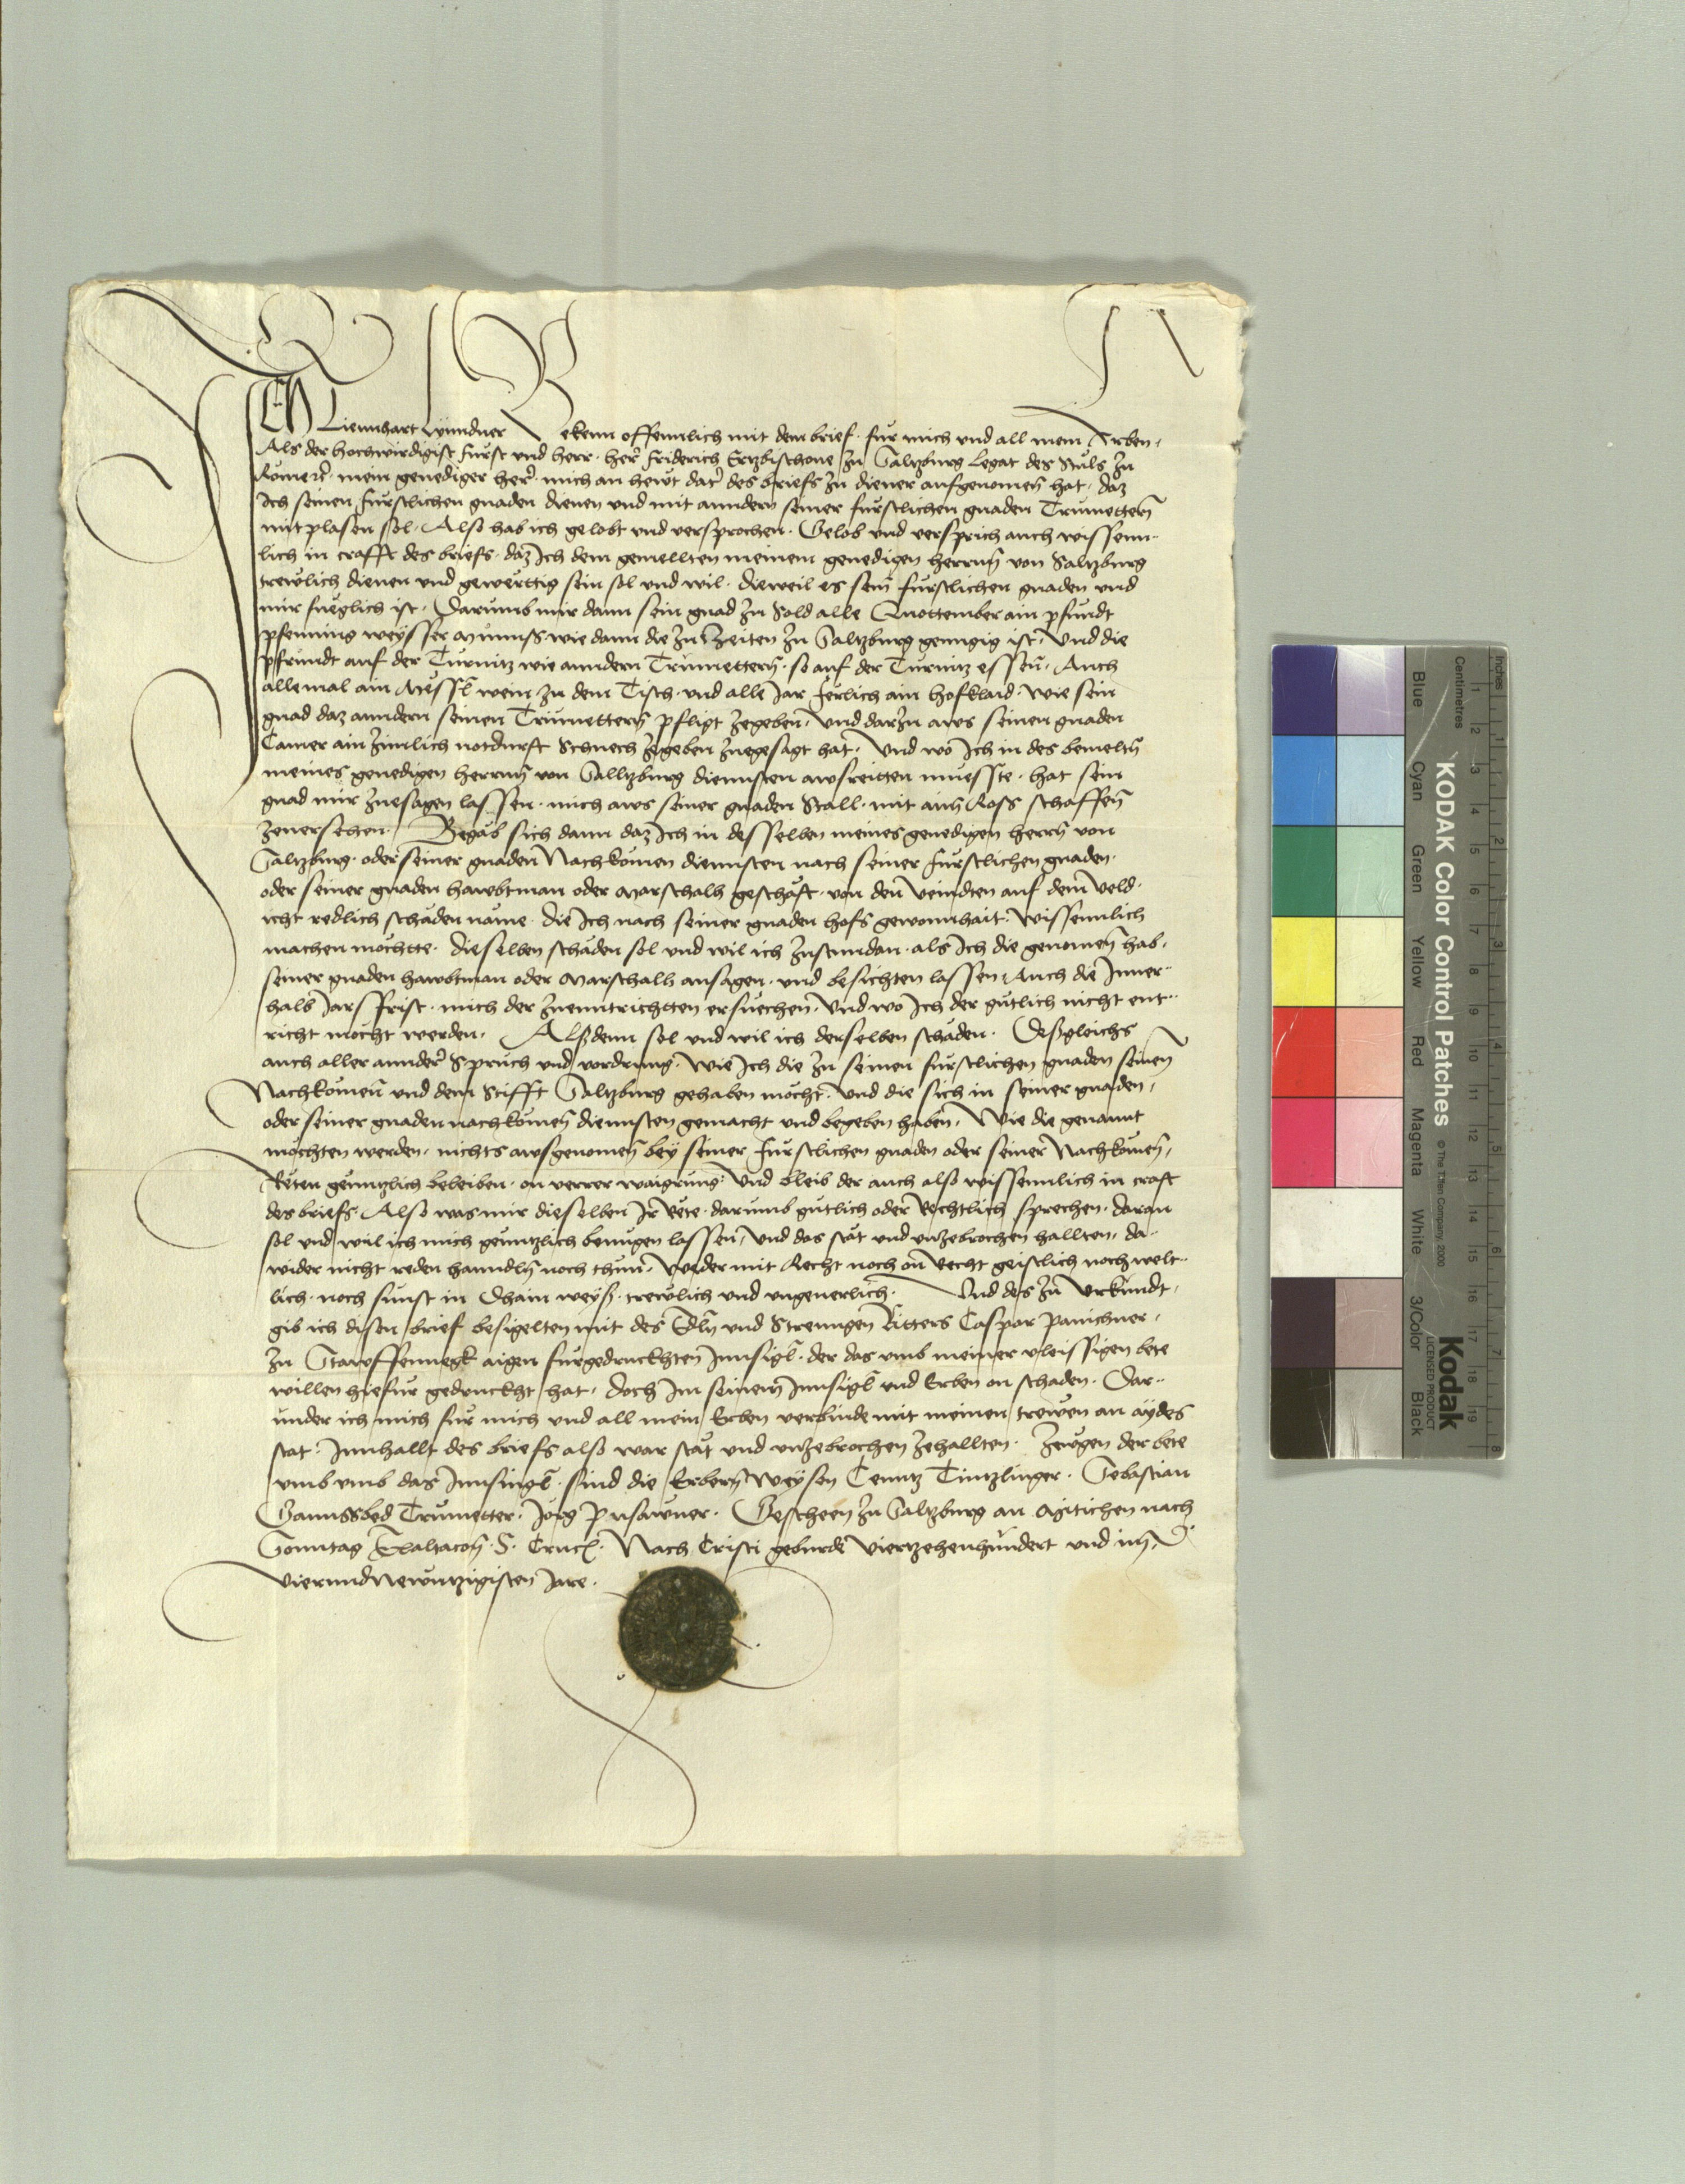 Ich Liennhart Lynndner Bekenn offennlich mit dem brief. fur mich und all mein Erben.
Als der hochwirdigist furst und herr. her Friderich Ertzbischoue zu Saltzburg Legat des Stuls zu
Rome etc. mein genediger her. mich an hewt dat des briefs zu diener aufgenomen hat. daz
Ich seinen furstlichen gnaden dienen und mit anndern seiner furstlichen gnaden Trumettern
mit plasen sol. Also hab ich gelobt und versprochen. Gelob und versprich auch wissenn-
lich in crafft des briefs. daz Ich dem gemellten meinem genedigen herrnn von Saltzburg
trewlich dienen und gewerttig sein sol und wil. dieweil es sein furstlichen gnaden und
mir fueglich ist. Darumb mir dann sein gnad zu Sold alle Quottember ain pfundt
pfenning weysser munnss wie dann die zu Zeiten zu Saltzburg genngig ist. Und die
pfrundt auf der Turnitz wie anndern Trumettern. so auf der Turnitz essen. Auch
allemal ain Messl wein zu dem Tisch. und alle Jar Jerlich ain hofklaid. wie sein
gnad daz anndern seinen Trumettern pfligt zegeben. Und darzu aws seinen gnaden
Camer ain zimlich notdurft Schuech zegeben zuegesagt hat. Und wo Ich in des bemeltn
meines genedigen herrnn von Salltzburg diennsten awsreitten muesste. hat sein
gnad mir zuesagen lassen. mich aws seiner gnaden Stall. mit ainn Ross schaffen
zeuersehen. Begab sich dann daz Ich in desselben meines genedigen herrn von
Saltzburg. oder seiner gnaden Nachkomen diennsten nach seiner furstlichen gnaden.
oder seiner gnaden hawbtman oder Marschalh geschaft. von den Veindten auf dem Veld.
icht redlich schaden name. die Ich nach seiner gnaden hofs gewonnhait. wissennlich
machen mochtte. dieselben schaden sol und wil ich zustundan. als Ich die genomen hab.
seiner gnaden hawbtman oder Marschalh ansagen. und besichten lassen. Auch die Inner-
halb Jars frist. mich der zuenntrichtten ersuechen. Und wo Ich der gutlich nicht ent-
richt mocht werden. Alßdenn sol und wil ich derselben schaden. Desgleichs
auch aller annder Spruch und vordrung. wie Ich die zu seinen furstlichen gnaden seinen
Nachkomen und dem Stifft Saltzburg gehaben mocht. und die sich in seiner gnaden.
oder seiner gnaden nachkomen diennsten gemacht und begeben haben. Wie die genannt
mochten werden. nichts awsgenomen bey seiner furstlichen gnaden oder seiner Nachkomen.
Reten genntzlich beleiben. on verrer waigrung. Und bleib der auch also wissennlich in craft
des briefs. Also was mir dieselben Ir Rete. darumb gutlich oder Rechtlich sprechen. daran
sol und wil ich mich genntzlich benugen lassen. Und das stat und unzebrochen hallten. da-
wider nicht reden hanndln noch thun. Weder mit Recht noch on Recht geistlich noch welt-
lich. noch sunst in Dhain weyß. trewlich und ungeuerlich. Und des zu Urkundt.
gib ich disen brief besigelten mit des Edln und Strenngen Ritters Caspar Panichner.
zu Stawffennegk aigen furgedruckhten Innsigl. der das umb meiner vleissigen bete
willen hiefur gedruckht hat. doch Im seinem Innsigl und Erben on schaden. Dar-
under ich mich fur mich und all mein Erben verbinde mit meinen trewen an aydes
stat. Innhallt des briefs also war stat und unzebrochen zehallten. Zewgen der bete
umb umb das Innsingl. sind die Erbern Weysen Conntz Tintzlinger. Sebastian
Gannssbed Trumetter. Jorg Pusawner. Gescheen zu Saltzburg an Mitichen nach
Sonntag Exaltacon. S. Crucis. Nach Cristi geburde Viertzehenhundert und im
vierundNewntzigisten Jare.
KODAK Color Control Patches © The Tiffen Company, 2000
Kodak LICENSED PRODUCT
Blue Cyan Green Yellow Red Magenta White 3/Color Black
Inches 1 2 3 4 5 6 7 8
Centimetres 1 2 3 4 5 6 7 8 9 10 11 12 13 14 15 16 17 18 19